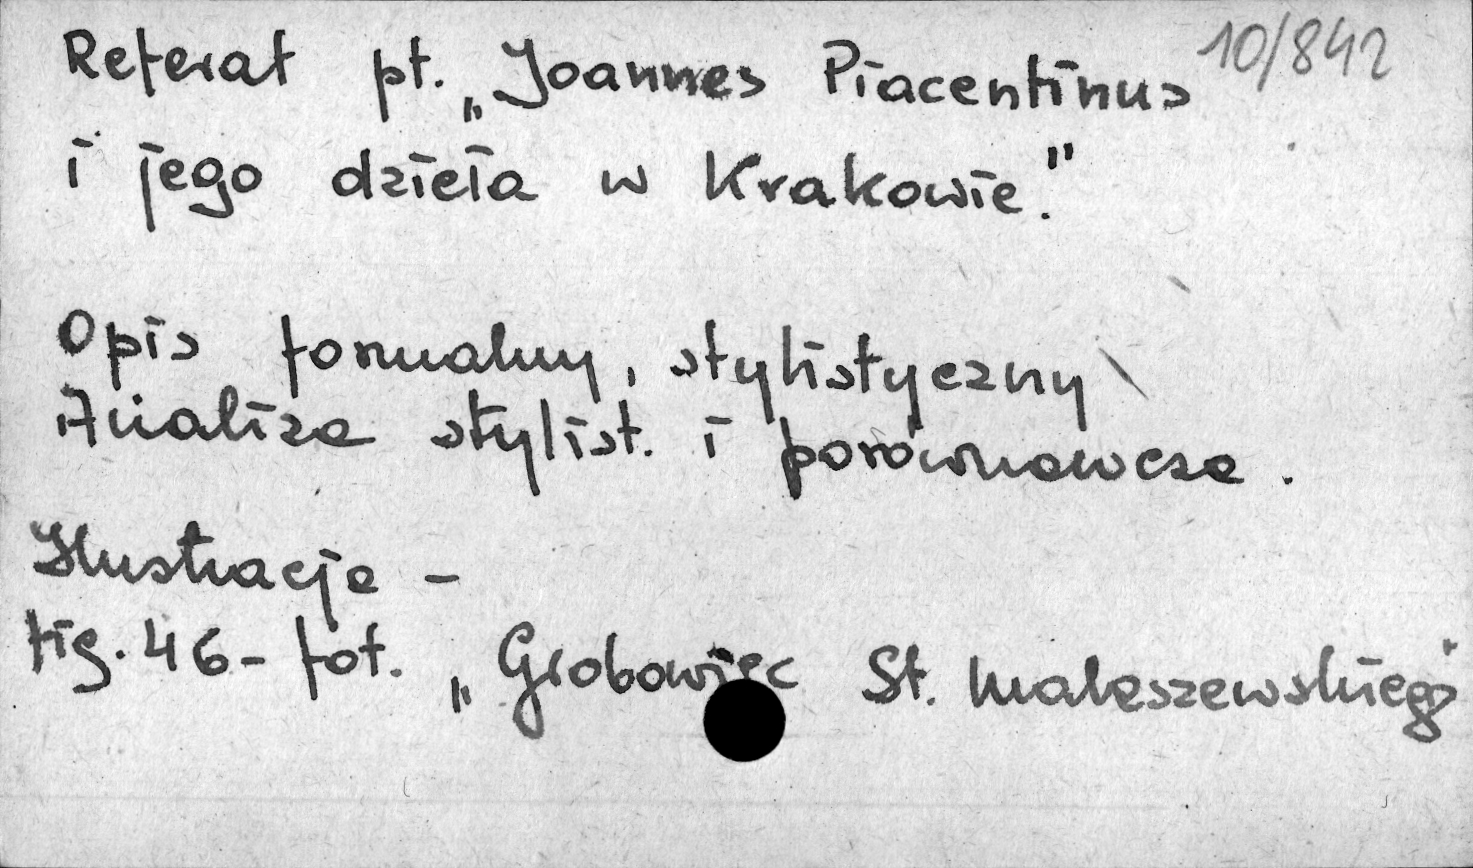 10/842
Referat pt. „Joannes Piacentinus
i jego dzieła w Krakowie."
Opis formalny, stylistyczny
Analiza stylist. i porównawcza.
Ilustracje -
fig. 46 - fot. „Grobowiec St. Maleszewskiego"